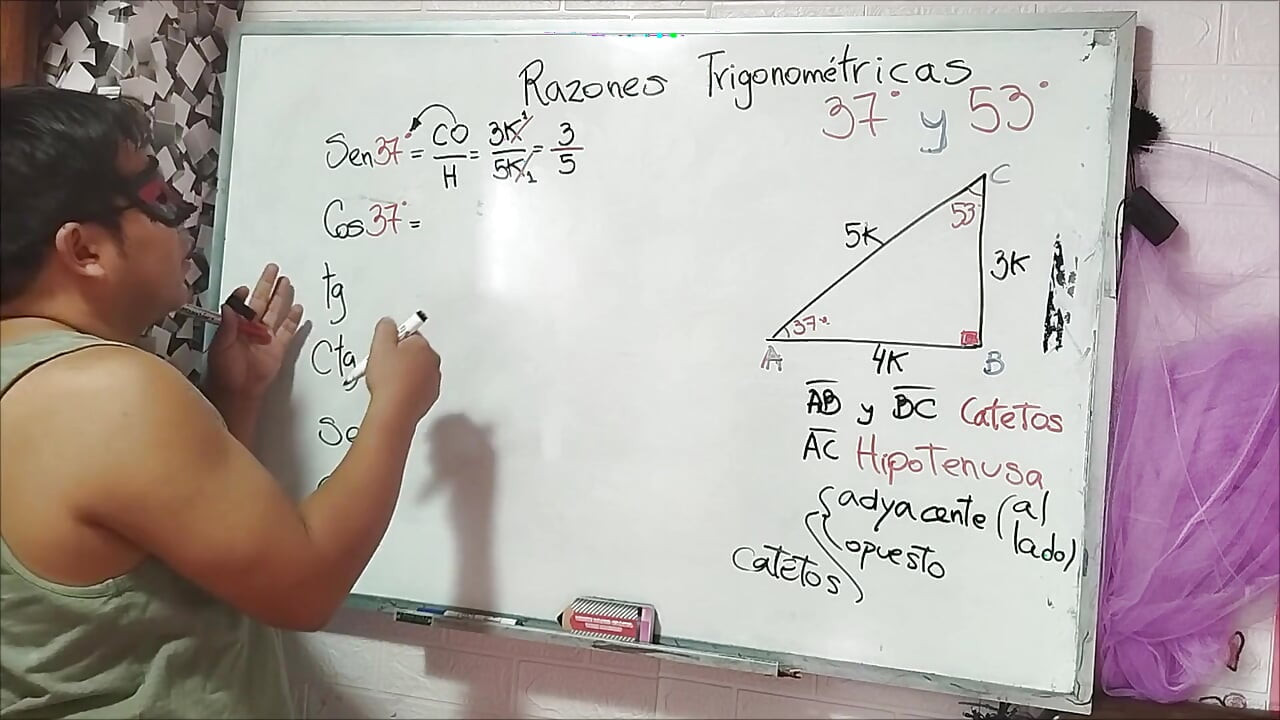 Razones Trigonométricas
37° y 53°
Sen37° = CO/H = 3K/5K = 3/5
Cos37° =
tg
Ctg
C
53°
5K
3K
37°
A
4K
B
AB y BC Catetos
AC Hipotenusa
Catetos { adyacente (al lado)
opuesto